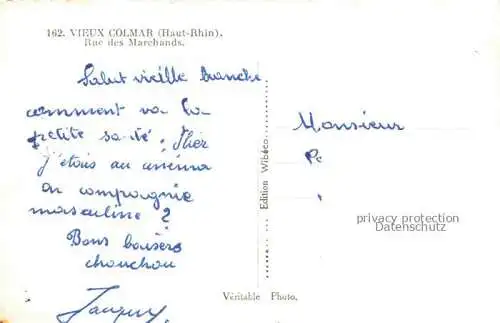 162. VIEUX COLMAR (Haut-Rhin).
Rue des Marchands.
Salut vieille branche.
comment va la
petite santé ; Hier
j'étais au cinéma
en compagnie
masculine ?
Bons baisers
chouchou
Monsieur
Edition Wibéco
privacy protection
Datenschutz
Véritable Photo.